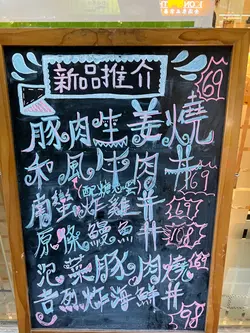 新品推介
豚肉生姜燒 $69
和風牛肉丼 $69
南蠻炸雞丼 $67
(配溫心蛋)
原條鰻魚丼 $108
泡菜豚肉燒 $68
吉列炸海鮮丼 $98